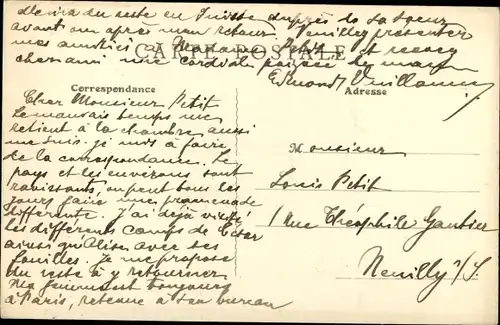 CARTE POSTALE
Correspondance
Cher Monsieur Petit
Le mauvais temps me
retient à la chambre aussi
me suis-je mis à faire
de la correspondance. Le
pays et les environs sont
ravissants, on peut tous les
jours faire une promenade
différente. J'ai déjà visité
les différents camps de César
ainsi qu'Alise avec ses
fouilles. Je me propose
du reste d'y retourner
Ma femme est toujours
à Paris, retenue à son bureau
et ira du reste en Suisse auprès de sa soeur
avant ou après mon retour. Veuillez présenter
mes amitiés à Madame Petit et recevez
cher ami une cordiale poignée de main
Edmond Vuillaume
Adresse
Monsieur
Louis Petit
1 Rue Théophile Gautier
Neuilly s/S.